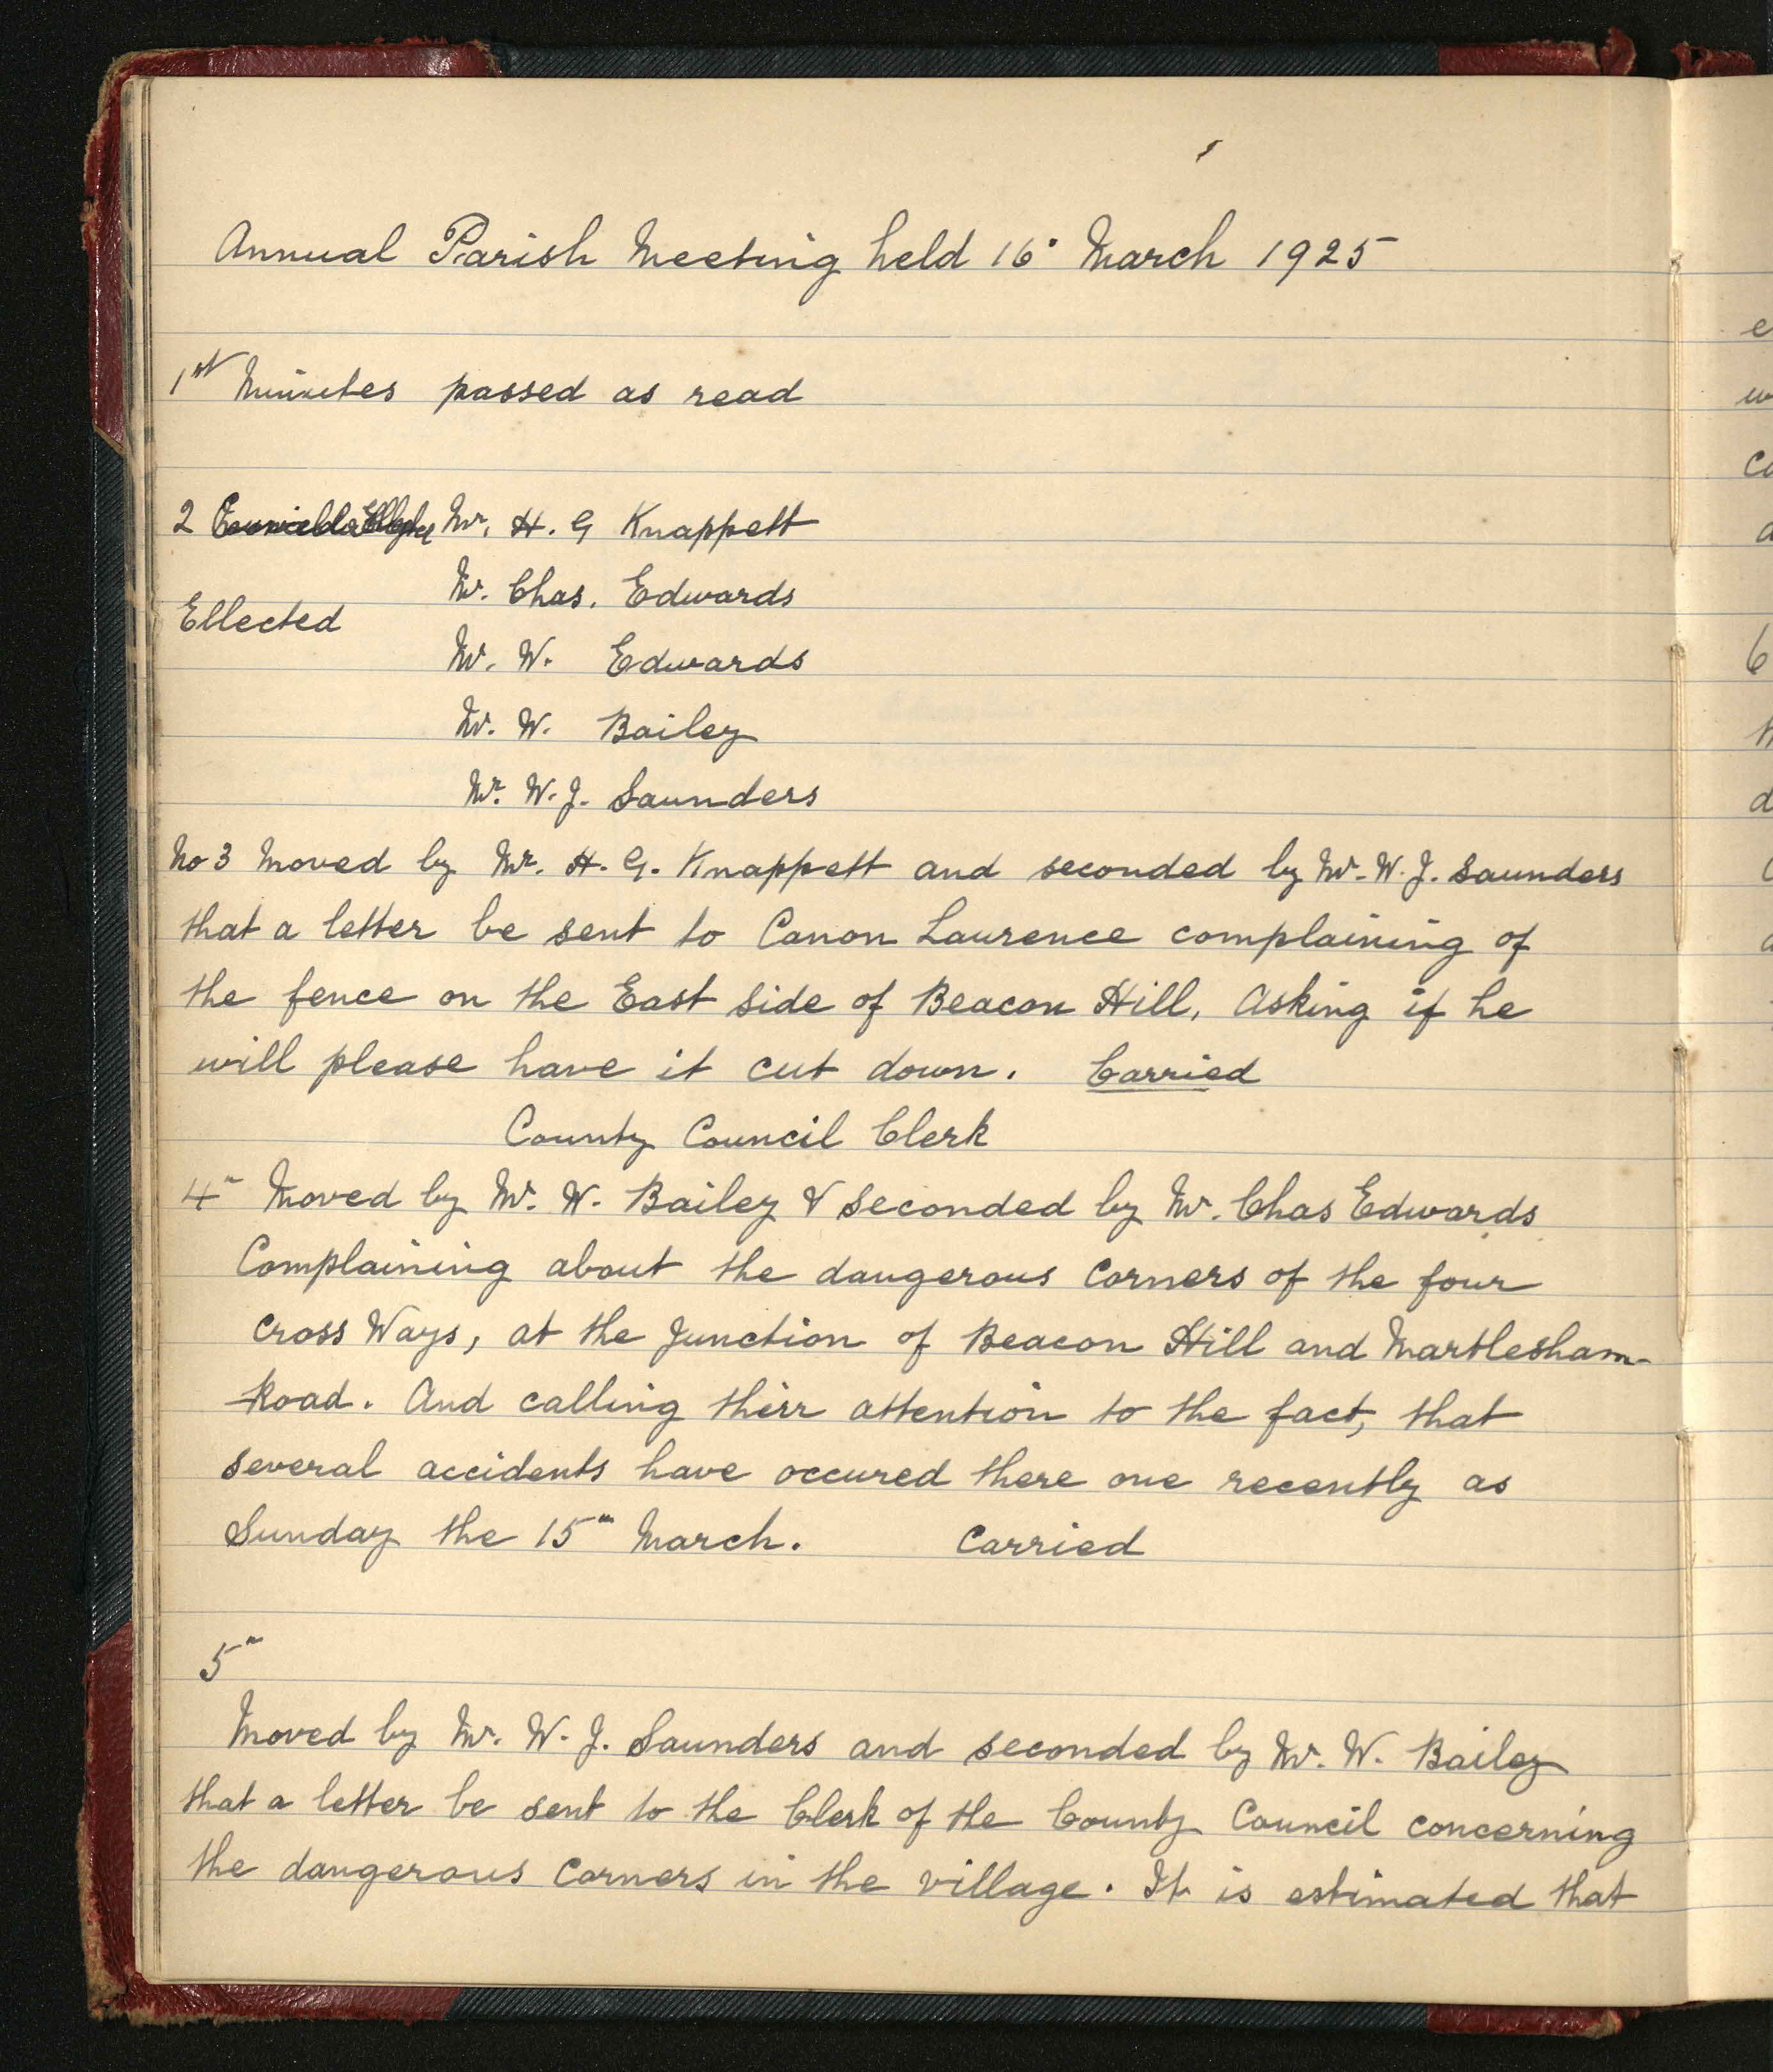 Annual Parish Meeting held 16 March 1925
1st Minutes passed as read
2 Mr. H. G Knappett
Mr. Chas. Edwards
Ellected
Mr. W. Edwards
Mr. W. Bailey
Mr. W. J. Saunders
No 3 Moved by Mr. H. G. Knappett and seconded by Mr. W. J. Saunders
that a letter be sent to Canon Laurence complaining of
the fence on the East Side of Beacon Hill, Asking if he
will please have it cut down. Carried
County Council Clerk
4th Moved by Mr. W. Bailey & Seconded by Mr. Chas Edwards
Complaining about the dangerous Corners of the four
Cross Ways, at the Junction of Beacon Hill and Martlesham
Road. And calling thier attention to the fact, that
several accidents have occured there one recently as
Sunday the 15th March. Carried
5th
Moved by Mr. W. J. Saunders and seconded by Mr. W. Bailey
that a letter be sent to the Clerk of the County Council concerning
the dangerous Corners in the village. It is estimated that